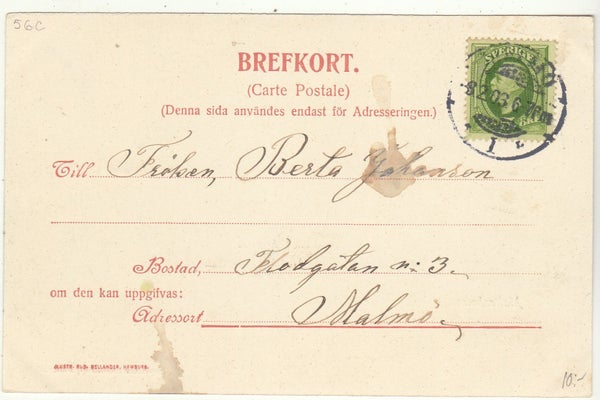 56C
BREFKORT.
(Carte Postale)
(Denna sida användes endast för Adresseringen.)
SVERIGE
8 2 03 6
1 L
Till Fröken, Berta Johanson
Bostad, Flodgatan n: 3.
om den kan uppgifvas:
Adressort Malmö.
10:-